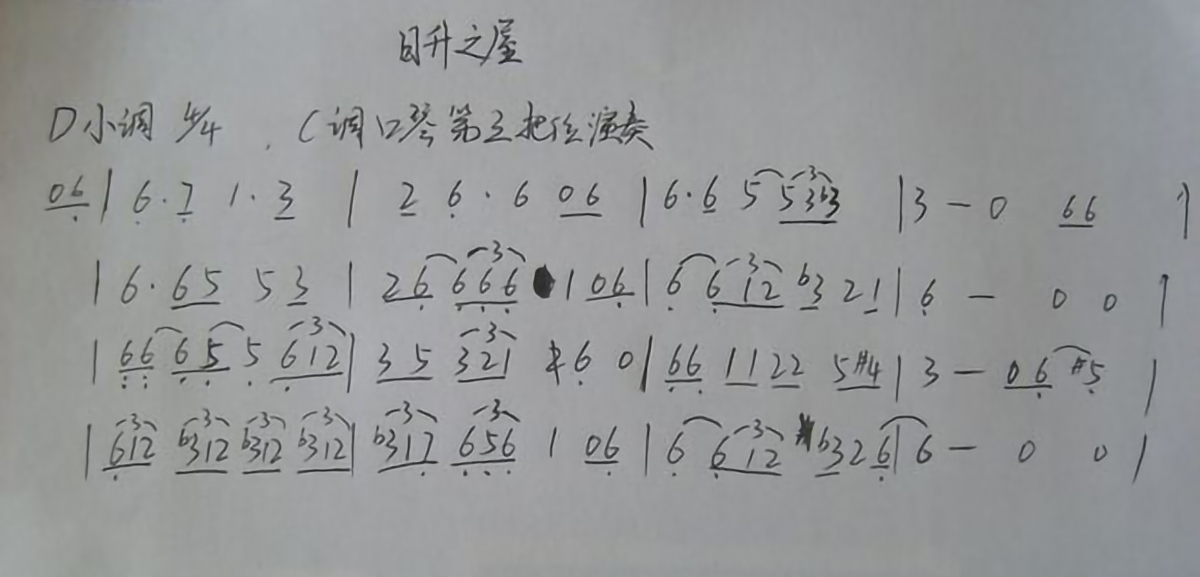 日升之屋
D小调 4/4 , C调口琴第三把位演奏
06 | 6·7 1·3 | 2 6·6 06 | 6·6 5 53b3 | 3 - 0 66 |
| 6·65 53 | 26 666 1 06 | 6 612 b3 21 | 6 - 0 0 |
| 66 65 5 612 | 35 321 6 0 | 66 11 22 5#4 | 3 - 06 #5 |
| 612 b312 b312 b312 | b317 656 1 06 | 6 612 b326 | 6 - 0 0 |